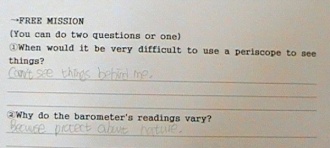 →FREE MISSION
(You can do two questions or one)
①When would it be very difficult to use a periscope to see
things?
Can't see things behind me.
②Why do the barometer's readings vary?
Because protect above nature.